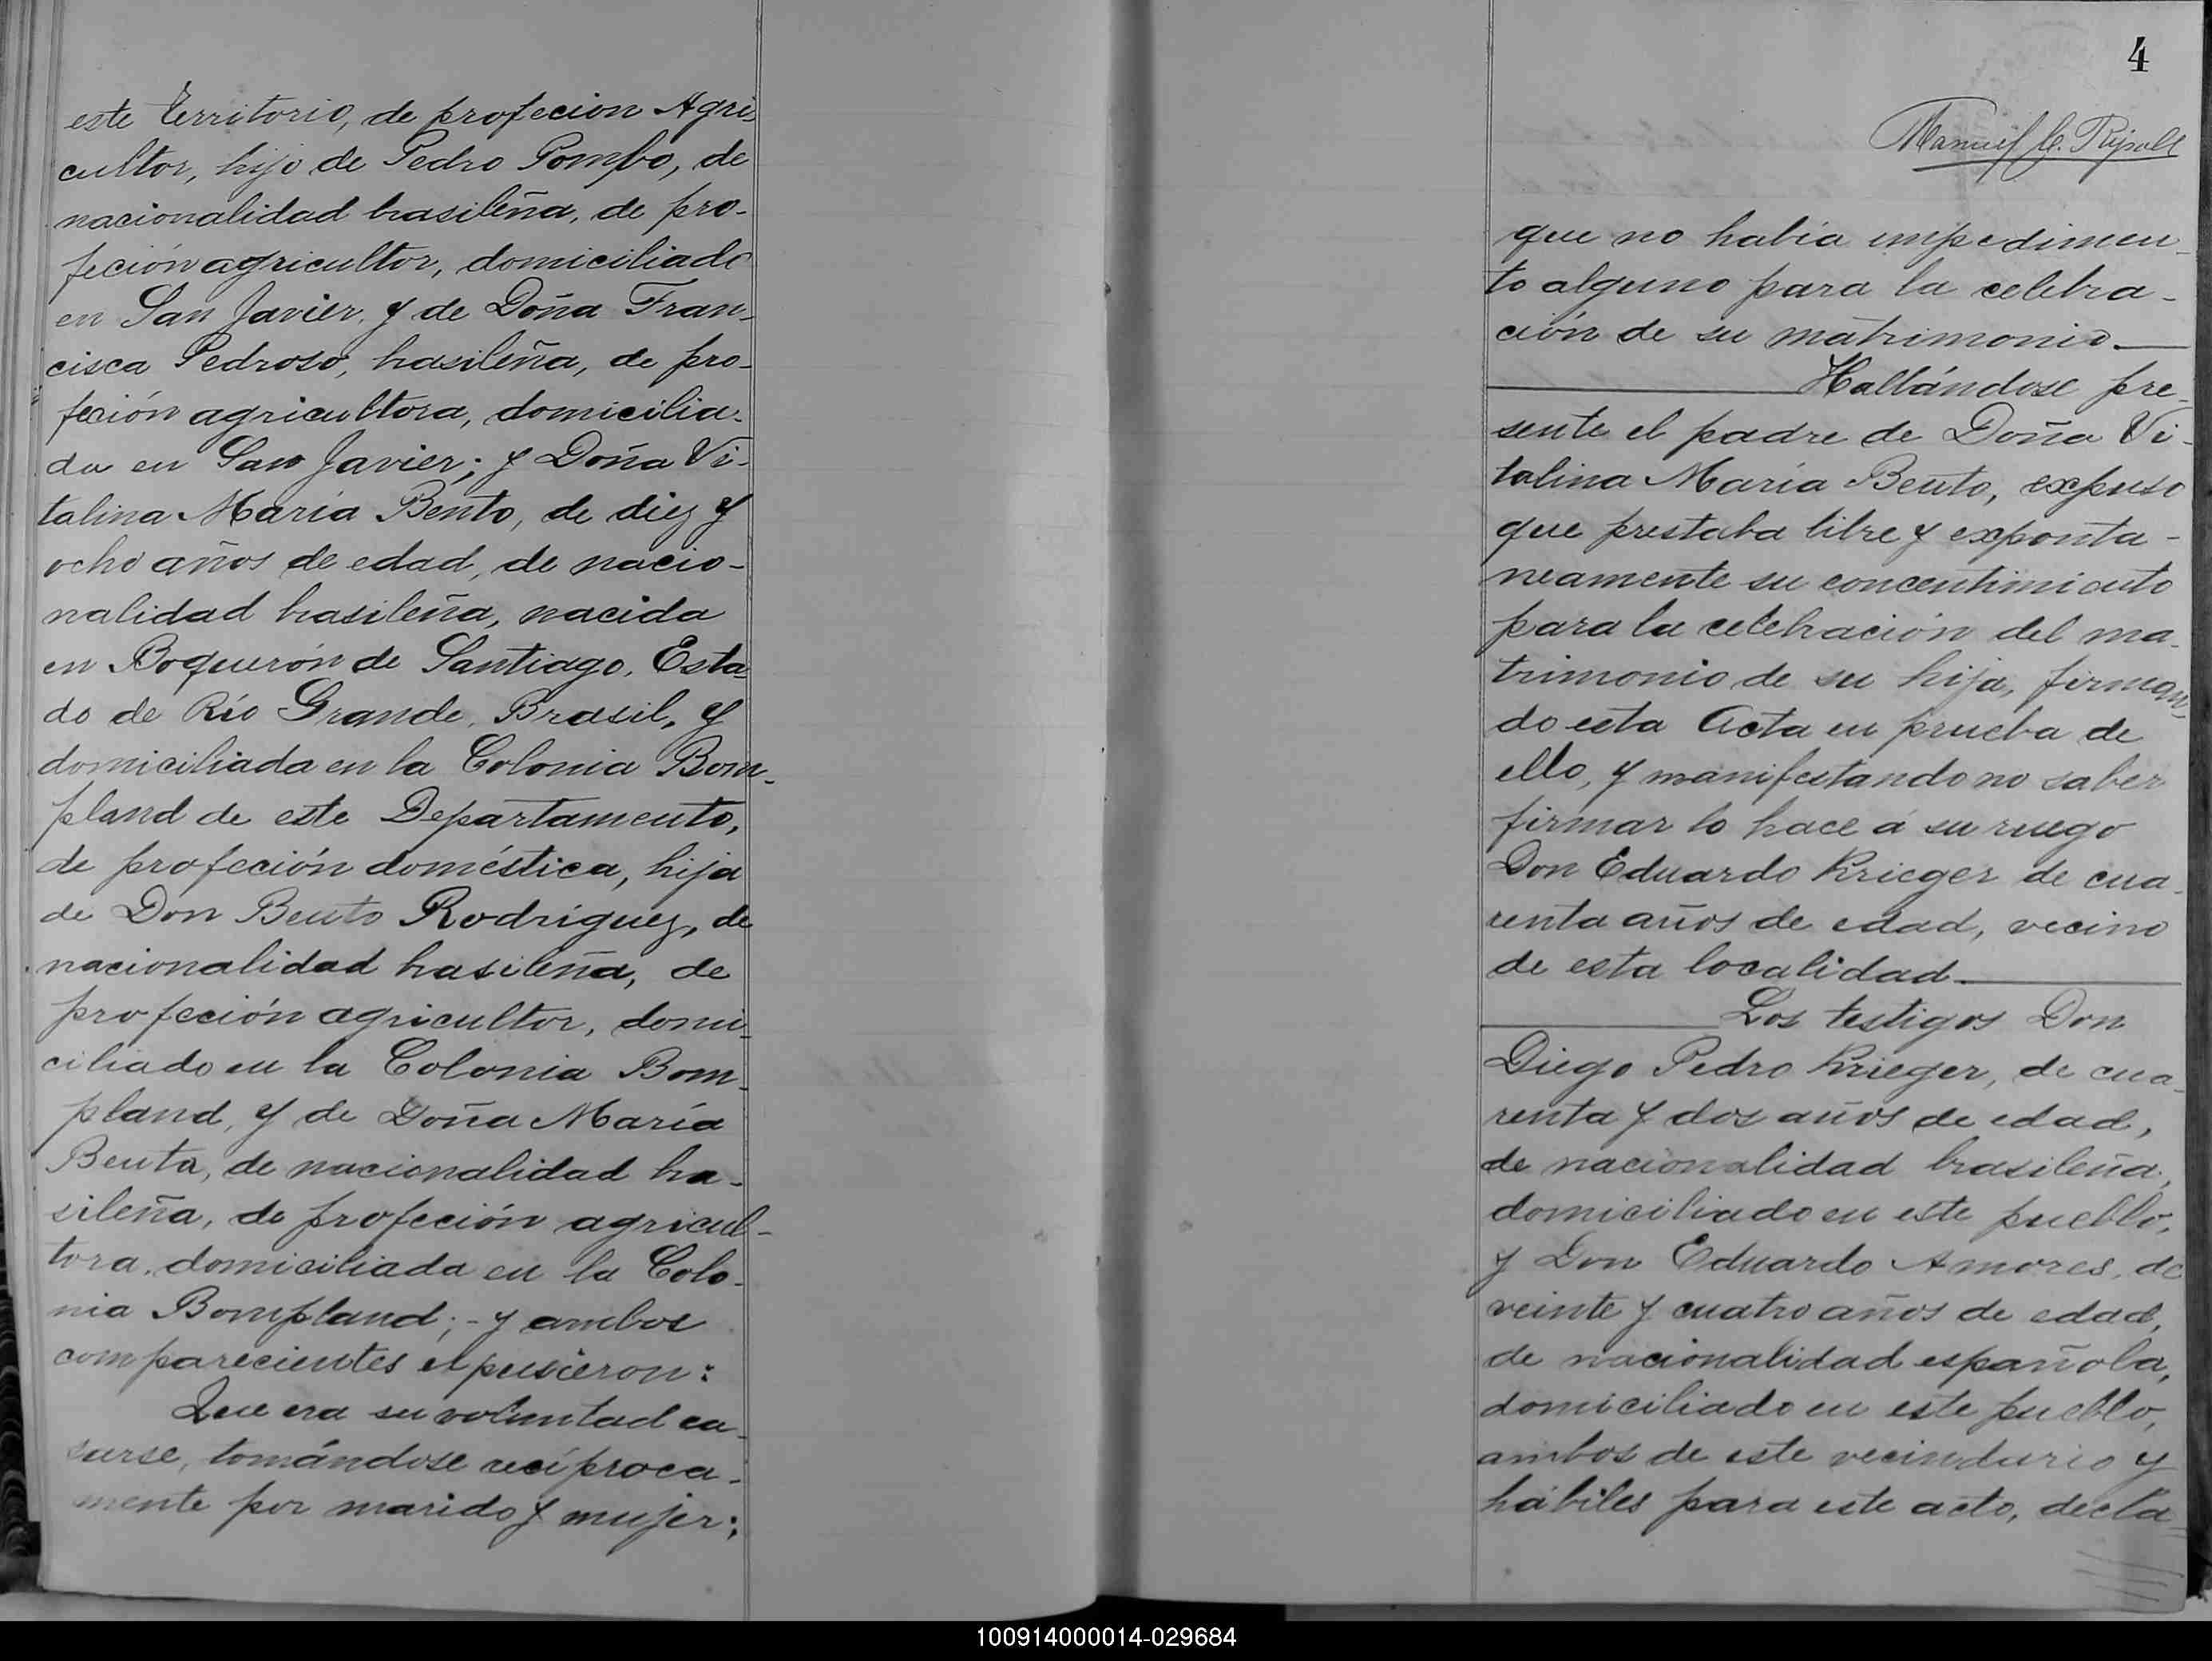 este territorio, de profecion Agri-
cultor, hijo de Pedro Pombo, de
nacionalidad brasileña, de pro-
feción agricultor, domiciliado
en San Javier, y de Doña Fran-
cisca Pedroso, brasileña, de pro-
feción agricultora, domicilia-
da en San Javier; y Doña Vi-
talina María Bento, de diez y
ocho años de edad, de nacio-
nalidad brasileña, nacida
en Boquerón de Santiago, Esta-
do de Río Grande, Brasil, y
domiciliada en la Colonia Bom-
pland de este Departamento,
de profeción doméstica, hija
de Don Bento Rodríguez, de
nacionalidad brasileña, de
profeción agricultor, domi-
ciliado en la Colonia Bom-
pland, y de Doña María
Benta, de nacionalidad bra-
sileña, de profeción agricul-
tora, domiciliada en la Colo-
nia Bompland; - y ambos
comparecientes expusieron:
Que era su voluntad ca-
sarse, tomándose recíproca-
mente por marido y mujer;
4
Manuel C. Ripoll
que no había impedimen-
to alguno para la celebra-
ción de su matrimonio.
Hallándose pre-
sente el padre de Doña Vi-
talina María Bento, expuso
que prestaba libre y exponta-
neamente su concentimiento
para la celebración del ma-
trimonio de su hija, firman-
do esta Acta en prueba de
ello, y manifestando no saber
firmar lo hace á su ruego
Don Eduardo Krieger de cua-
renta años de edad, vecino
de esta localidad.
Los testigos Don
Diego Pedro Krieger, de cua-
renta y dos años de edad,
de nacionalidad brasileña,
domiciliado en este pueblo,
y Don Eduardo Amores, de
veinte y cuatro años de edad,
de nacionalidad española,
domiciliado en este pueblo,
ambos de este vecindario y
hábiles para este acto, decla-
100914000014-029684